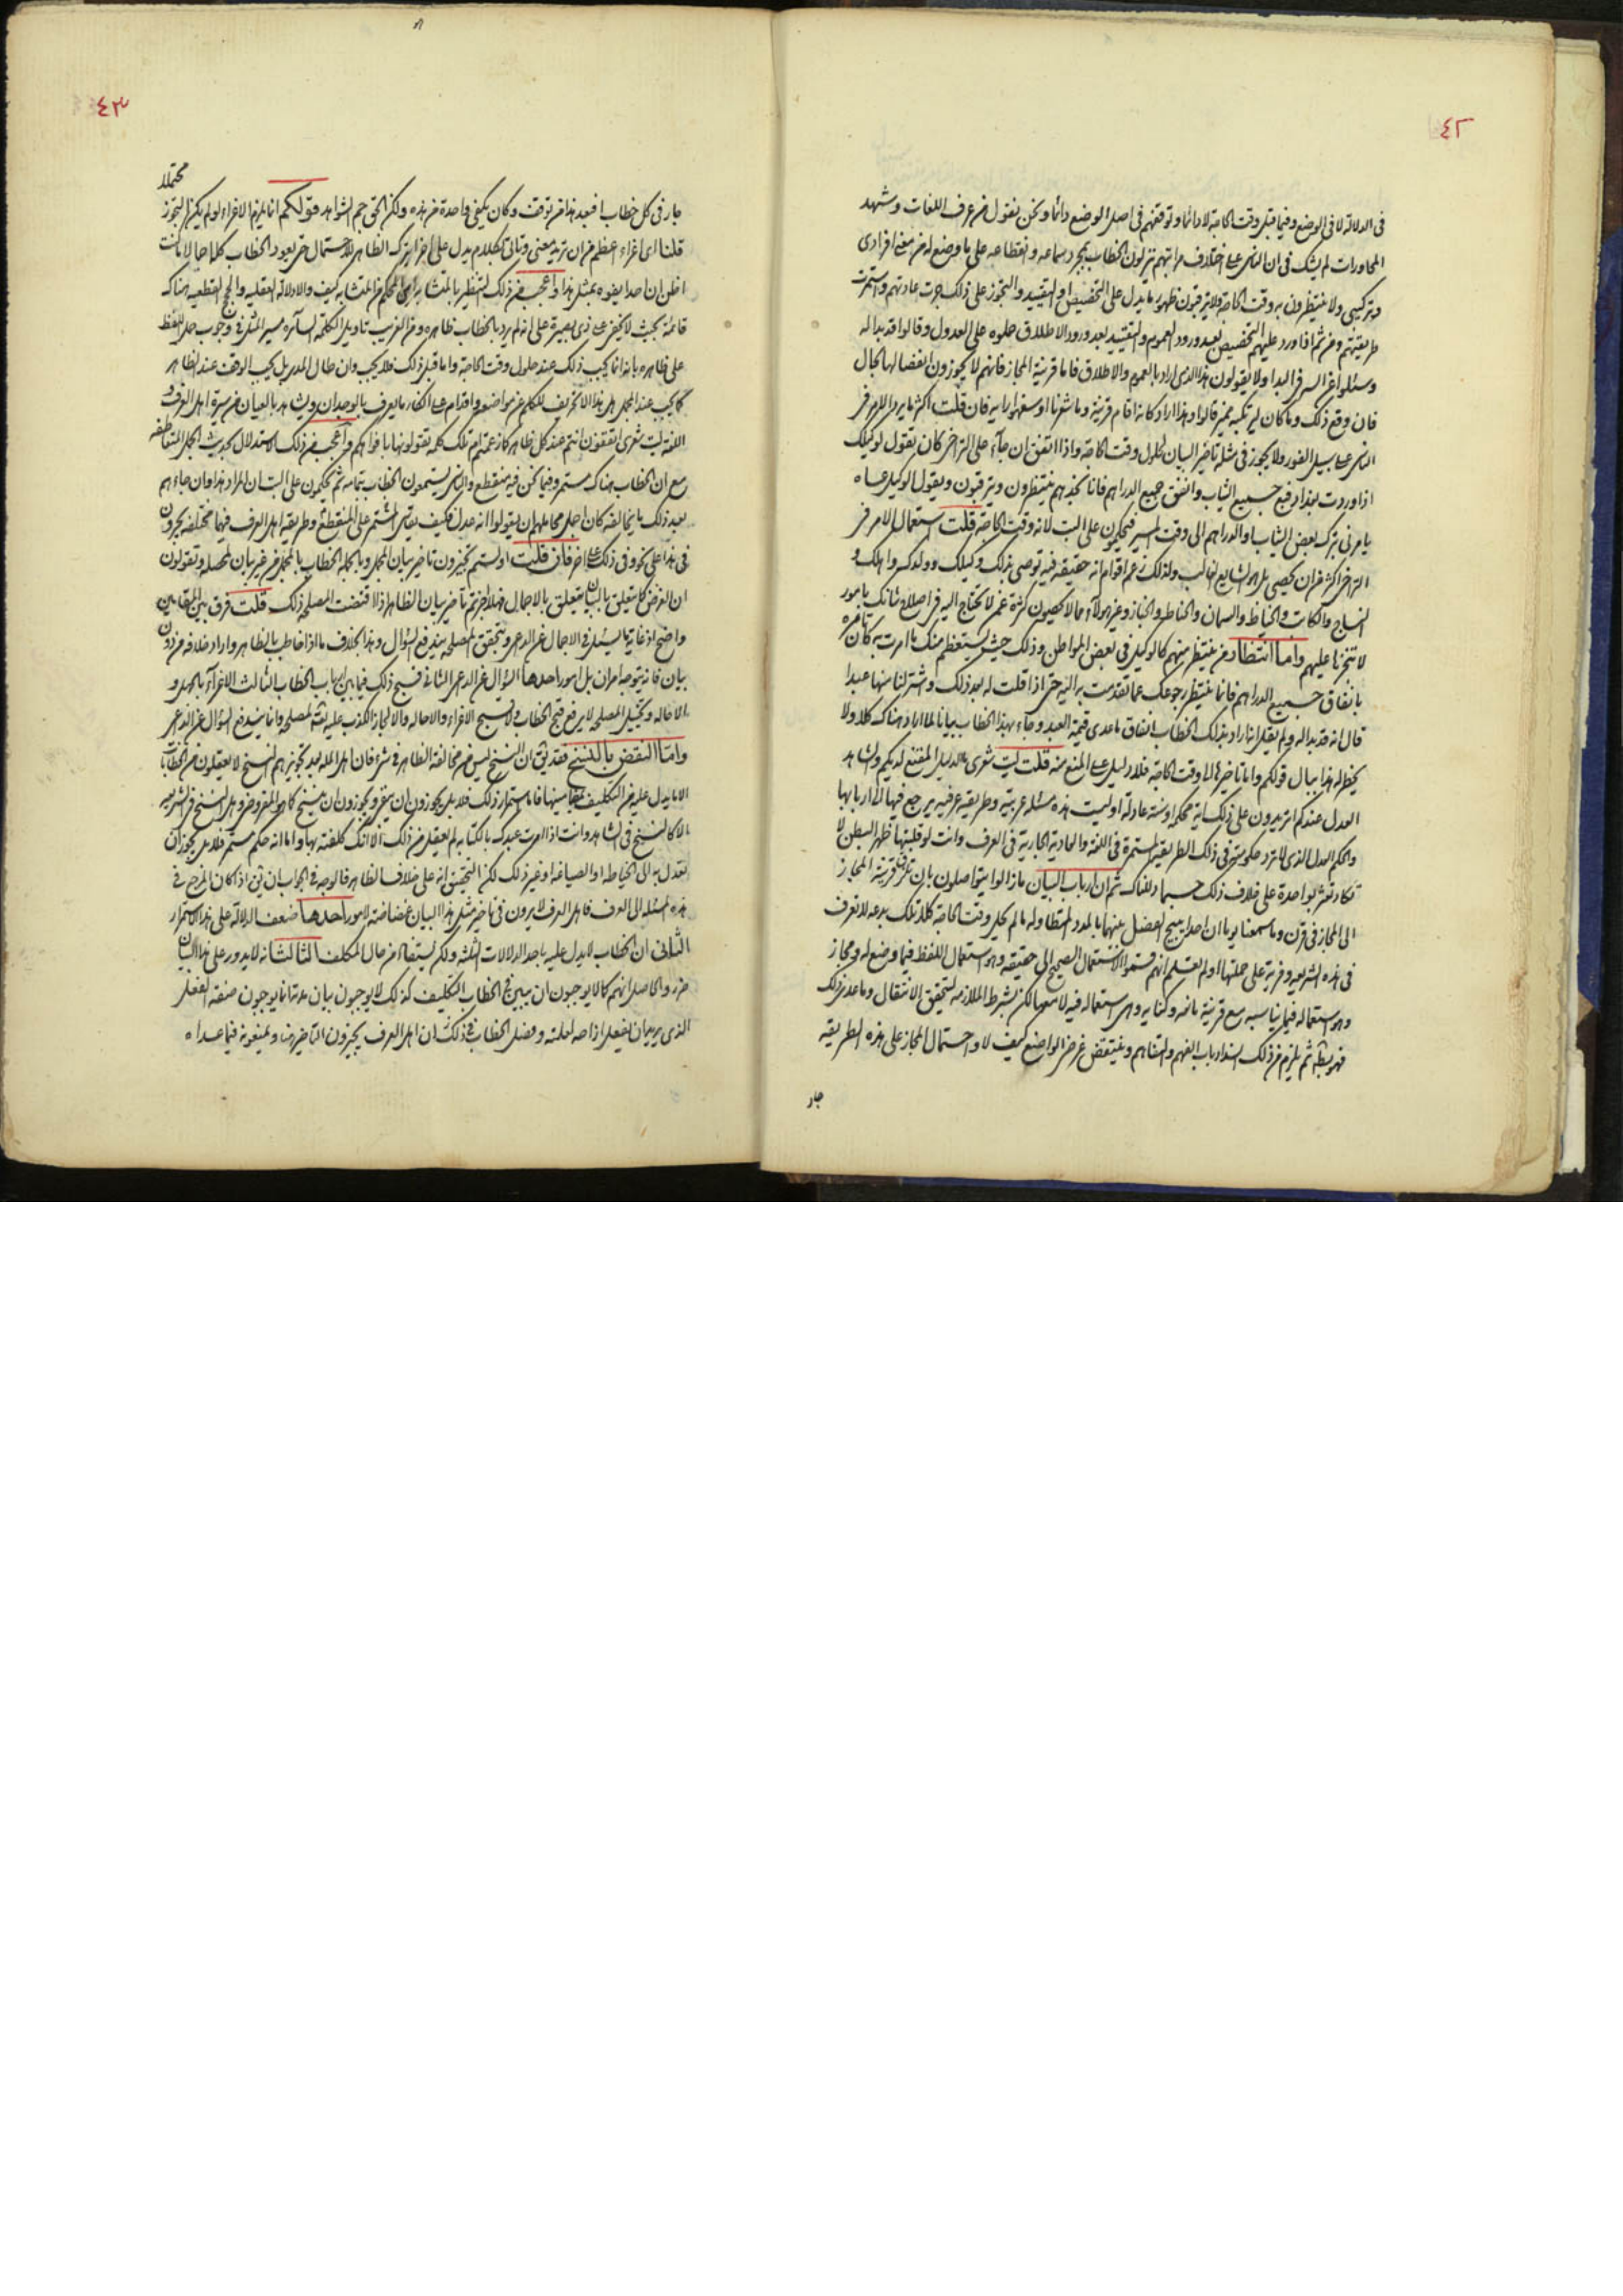 ٤٢
فى الدلالة لا فى الوضع وفيما قبل وقت الحاجة لا دائما وتوقفهم فى اصل الوضع دائما ونحن نقول من عرف اللغات وشهد
المحاورات لم يشك فى ان الناس على اختلاف مراتبهم ينزلون الخطاب بمجرد سماعه وانقطاعه على ما وضع له من معنى افرادى
وتركيبى ولا ينتظرون به وقت الحاجة ولا يترقبون ظهور ما يدل على التخصيص او التقييد والتجوز على ذلك جرت عادتهم واستمرت
طريقتهم ومن ثم اذا ورد عليهم التخصيص بعد ورود العموم والتقييد بعد ورود الاطلاق حملوه على العدول وقالوا قد بدا له
وسئلوا عن السر فى البدا ولا يقولون هذا الذى اراد بالعموم والاطلاق فاما قرينة المجاز فانهم لا يجوزون انفصالها بحال
فان وقع ذلك وما كان قالوا وهذا اراد كانه اقام قرينة وما شعرنا او سفهوا رايه فان قلت اكثر ما يرد الامر فى
الناس على سبيل الفور ولا يجوز فى مثله تاخير البيان لحلول وقت الحاجة واذا اتفق ان جاء على التراخى كان تقول لوكيلك
اذا وردت بغداد فبع جميع الثياب وانفق جميع الدراهم فانا نجدهم ينتظرون ويترقبون ويقول الوكيل عساه
يامرنى بترك بعض الثياب او الدراهم الى وقت المسير فيحكمون على البت لانه وقت الحاجة قلت استعمال الامر فى
التراخى اكثر من ان يحصى بل هو الشايع الغالب ولذلك زعم اقوام انه حقيقة فيه توصى بذلك وكيلك وولدك واهلك و
النساج والكاتب والخياط والسمان والحناط والخباز وغير هؤلاء مما لا يحصون كثرة عمن لا تحتاج اليه فى اصلاح شانك بامور
لا تنجزنا عليهم واما انتظار من ينتظر منهم كالوكيل فى بعض المواطن وذلك حيث يستعظم منك ما امرت به كان تامره
بانفاق جميع الدراهم فانما ينتظر رجوعك عما تقدمت به اليه حتى اذا قلت له بعد ذلك واشتر لنا منها عبدا
قال انه قد بدا له ولم يقل انما اراد بذلك الخطاب انفاق ما عدى قيمة العبد وجاء بهذا الخطاب بيانا لما اراد هناك كلا ولا
يخطر له هذا ببال قولكم واما تاخيرها الى وقت الحاجة فلا دليل على المنع منه قلت ليت شعرى ما الدليل المقنع لديكم والشاهد
العدل عندكم اتريدون على ذلك اية محكمة او سنة عادلة او ليست هذه مسئلة عربية وطريقة عرفية يرجع فيها الى اربابها
والحكم العدل الذى لا ترد حكومته فى ذلك الطريقة المستمرة فى اللغة والعادية الجارية فى العرف وانت لو قلبتها ظهر البطن لا
تكاد تعثر بواحدة على خلاف ذلك حسبما دللناك ثم ان ارباب البيان ما زالوا يتواصلون بان تلزم قرينة المجاز
الى المجاز فى قرن وما سمعنا يوما ان احدا يبيح الفصل بينهما بالمدد المتطاولة ما لم يحل وقت الحاجة كلا تلك بدعة لا تعرف
فى هذه الشريعة وفرية على حملتها اولم تعلم انهم قسموا الاستعمال الصحيح الى حقيقة وهو استعمال اللفظ فيما وضع له ومجاز
وهو استعماله فيما يناسبه مع قرينة مانعة وكناية وهى استعماله فيه لا معها لكن بشرط الملازمة ليتحقق الانتقال وما عدى ذلك
فهو ثم يلزم من ذلك انسداد باب الفهم والتفاهم وينتقض غرض الواضع كيف لا واحتمال المجاز على هذه الطريقة
جار
٤٣
جار فى كل خطاب فبعد هذا من توقف وكان يكفى واحدة من هذه ولكن الحق جم الشواهد قولكم انما يلزم الاغراء لو لم يكن التجوز
محتملا
قلنا اى اغراء اعظم من ان تريد معنى وتاتى بكلام يدل على اخر ايترك الظاهر للاحتمال حتى يعود الخطاب كلما احالا ما كنت
اظن ان احدا يفوه بمثل هذا واعجب من ذلك التنظير بالمتشابه اين المحكم من المتشابه كيف والادلة العقلية والحجج القطعية هناك
قائمة بحيث لا يخفى على ذى بصيرة على انه لم يرد بالخطاب ظاهره ومن الغريب تاويل الكلمة السائرة وجوب حمل اللفظ
على ظاهره بانه انما يجب ذلك عند حلول وقت الحاجة واما قبل ذلك فلا يجب وان طال المدى بل يجب الوقف عند الظاهر
كما يجب عند المجمل هل هذا الا تحريف للكلم عن مواضعه واقدام على انكار ما يعرف بالوجدان ويشاهد بالعيان من سيرة اهل العرف و
اللغة ليت شعرى اتقفون انتم عند كل ظاهر كما زعمتم ام تلك كلمة تقولونها بافواهكم واعجب من ذلك الاستدلال بحديث الجمل المتعاطفة
مع ان الخطاب هناك مستمر وفيما نحن فيه منقطع والناس يستمعون الخطاب بتمامه ثم يحكمون على البت ان المراد هذا وان جاءهم
بعد ذلك ما يخالفه كان اجل محامله ان يقولوا انه عدل فكيف يقاس المستمر على المنقطع وطريقة اهل العرف فيهما مختلفة يجرون
فى هذا على نحو وفى ذلك على اخر فان قلت اولستم تجيزون تاخير بيان المجمل وبالجملة الخطاب بالمجمل من غير بيان لمصلحة وتقولون
ان الغرض كما يتعلق بالبيان يتعلق بالاجمال فهلا جوزتم تاخير بيان الظاهر اذا اقتضت المصلحة ذلك قلت فرق بين المقامين
واضح اذ غاية ما يسئل فى الاجمال عن الداعى وبتحقق المصلحة يندفع السؤال وهذا بخلاف ما اذا خاطب بالظاهر واراد خلافه من دون
بيان فانه يتوجه امران بل امور احدها السؤال عن الداعى الثانى قبح ذلك فيما بين ارباب الخطاب الثالث الاغراء بالجهل و
الاحالة وتخيل المصلحة لا يرفع قبح الخطاب ولا يبيح الاغراء والاحالة والا لجاز الكذب عليه ثمة لمصلحة وانما يندفع السؤال عن الداعى
واما النقض بالنسخ فقد يق ان النسخ ليس من مخالفة الظاهر فى شئ فان اهل الملة بعد تجويزهم النسخ لا يعقلون من الخطاب
الا ما يدل عليه من التكليف فاما استمرار ذلك فلا بل يجوزون ان يستمر ويجوزون ان ينسخ كما هو المفروض وهل النسخ فى الشريعة
الا كالنسخ فى الشاهد وانت اذا امرت عبدك بالكتابة لم يعقل من ذلك الا انك كلفته بها واما انه حكم مستمر فلا بل يجوز ان
تعدل به الى الخياطة او الصياغة او غير ذلك لكن التحقيق انه على خلاف الظاهر فالوجه فى الجواب ان يق اذا كان المرجع فى
هذه المسئلة الى العرف فاهل العرف لا يرون فى تاخير مثل هذا البيان غضاضة لامور احدها ضعف الدلالة على هذا الاستمرار
الثانى ان الخطاب لا يدل عليه باحد الدلالات الثلثة ولكن يستفاد من حال المكلف الثالث انه لا يدور على هذا البيان
ضرر والحاصل انهم كما لا يوجبون ان يبين فى الخطاب التكليف كذلك لا يوجبون بيان مدته انما يوجبون صفة الفعل
الذى يريدان ليفعل اذا صه لعلته وفصل الخطاب فى ذلك ان اهل العرف يجيزون التاخير هنا ويمنعونه فيما عداه